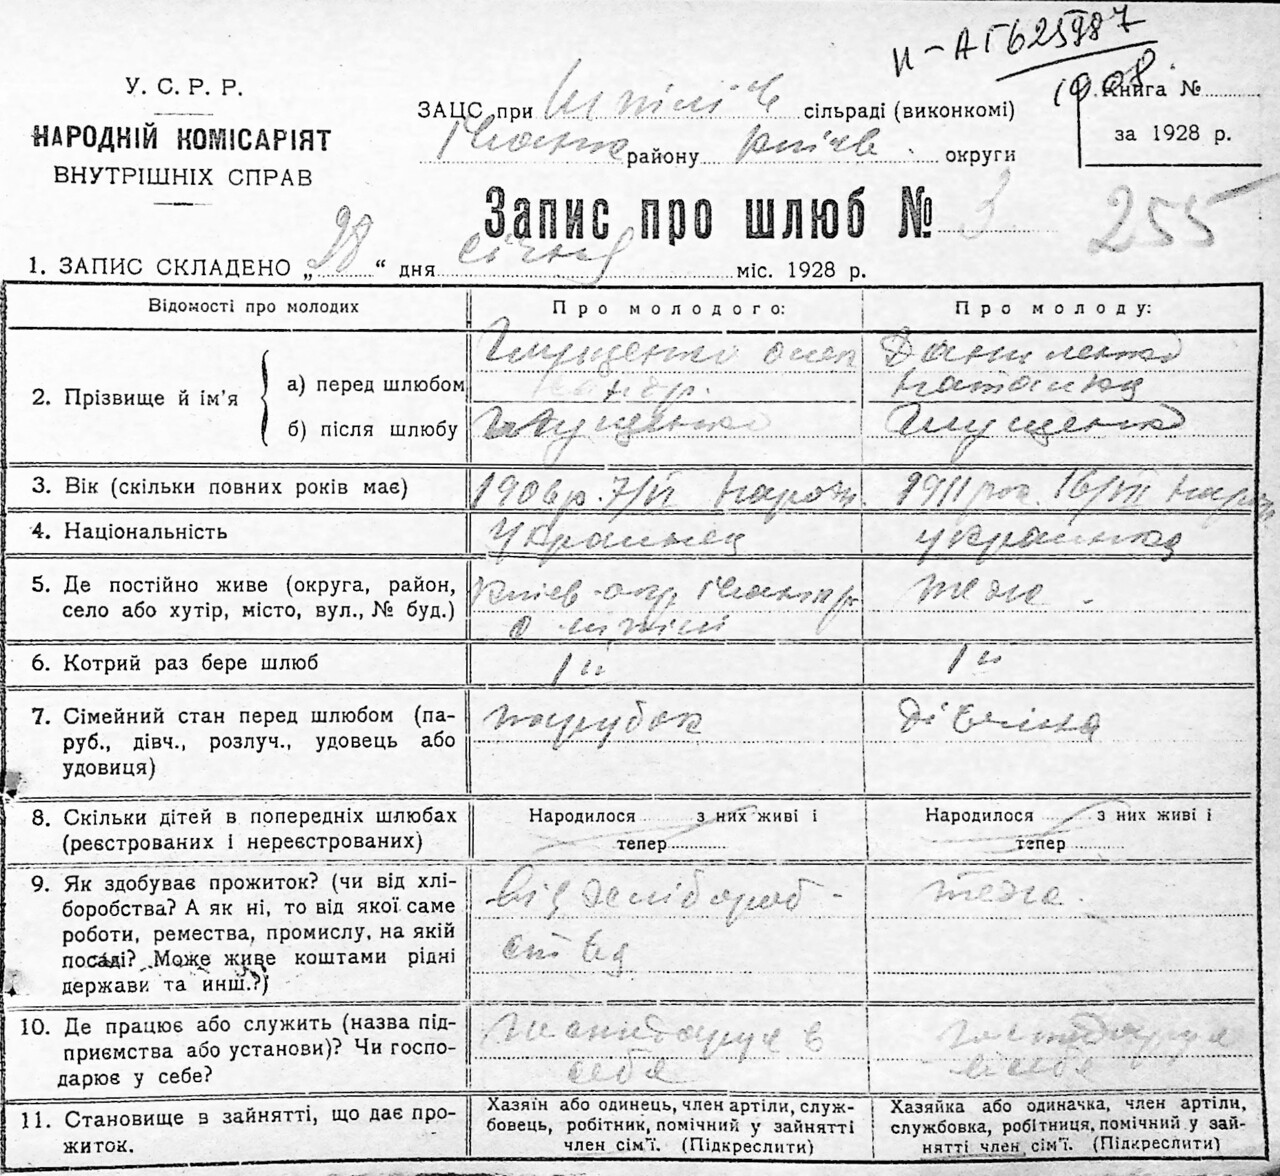 У. С. Р. Р.
НАРОДНІЙ КОМІСАРІЯТ
ВНУТРІШНІХ СПРАВ
И-АГ625987
1928
ЗАЦС при сільраді (виконкомі)
району округи
Книга №
за 1928 р.
Запис про шлюб № 3
255
1. ЗАПИС СКЛАДЕНО „28“ дня січня міс. 1928 р.
Відомості про молодих
Про молодого:
Про молоду:
2. Прізвище й ім’я
а) перед шлюбом
Даниленко
Наталка
б) після шлюбу
3. Вік (скільки повних років має)
1906 р. 7/VI народ.
1911 рок. 16/VIII народ
4. Національність
Украинец
украинка
5. Де постійно живе (округа, район,
село або хутір, місто, вул., № буд.)
Київ окр
теж
6. Котрий раз бере шлюб
1 й
1 й
7. Сімейний стан перед шлюбом (па-
руб., дівч., розлуч., удовець або
удовиця)
парубок
дівчина
8. Скільки дітей в попередніх шлюбах
(реєстрованих і нереєстрованих)
Народилося з них живі і
тепер
Народилося з них живі і
тепер
9. Як здобуває прожиток? (чи від хлі-
боробства? А як ні, то від якої саме
роботи, ремества, промислу, на якій
посаді? Може живе коштами рідні
держави та инш.?)
від хлібороб-
ства
теж
10. Де працює або служить (назва під-
приємства або установи)? Чи госпо-
дарює у себе?
господарує в
себе
господарує
в себе
11. Становище в зайнятті, що дає про-
житок.
Хазяїн або одинець, член артіли, служ-
бовець, робітник, помічний у зайнятті
член сім’ї. (Підкреслити)
Хазяйка або одиначка, член артіли,
службовка, робітниця, помічний у зай-
нятті член сім’ї. (Підкреслити)